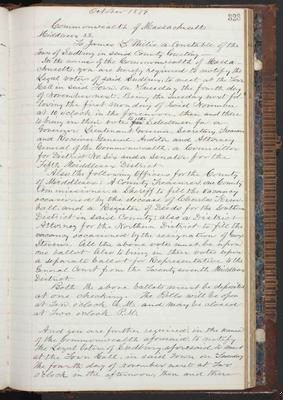 October 1879
323
Commonwealth of Massachusetts
Middlesex SS.
To James L. Willis a Constable of the
Town of Sudbury in said County Greeting
In the name of the Commonwealth of Massa-
chusetts, you are hereby required to notify the
Legal voters of said Sudbury, to meet at the Town
Hall in said Town on Tuesday the fourth day
of November next, being the Tuesday next fol-
lowing the first Monday of said November
at 10 o'clock in the forenoon, then and there
to bring in their votes to the Selectmen for a
Governor Lieutenant Governor, Secretary, Treasurer
and Receiver General, Auditor and Attorney
General of the Commonwealth, a Councillor
for District No Six and a Senator for the
Fifth Middlesex District.
Also the following Officers for the County
of Middlesex: A County Treasurer one County
Commissioner, a Sheriff to fill the vacancy
occasioned by the decease of Charles Kim-
ball and a Register of Deeds for the Southern
District in said County; also a District
Attorney for the Northern District to fill the
vacancy occasioned by the resignation of Geo
Stevens. All the above votes must be upon
one ballot. Also to bring in their votes upon
a separate ballot for Representative to the
General Court from the Twenty seventh Middlesex
District
Both the above ballots must be deposited
at one checking. The Polls will be open
at Ten o'clock A.M. and may be closed
at Two o'clock P.M.
And you are further required in the name
of the Commonwealth aforesaid to notify
the Legal Voters of Sudbury aforesaid to meet
at the Town Hall in said Town on Tuesday
the fourth day of November next at Two
o'clock in the afternoon, then and there